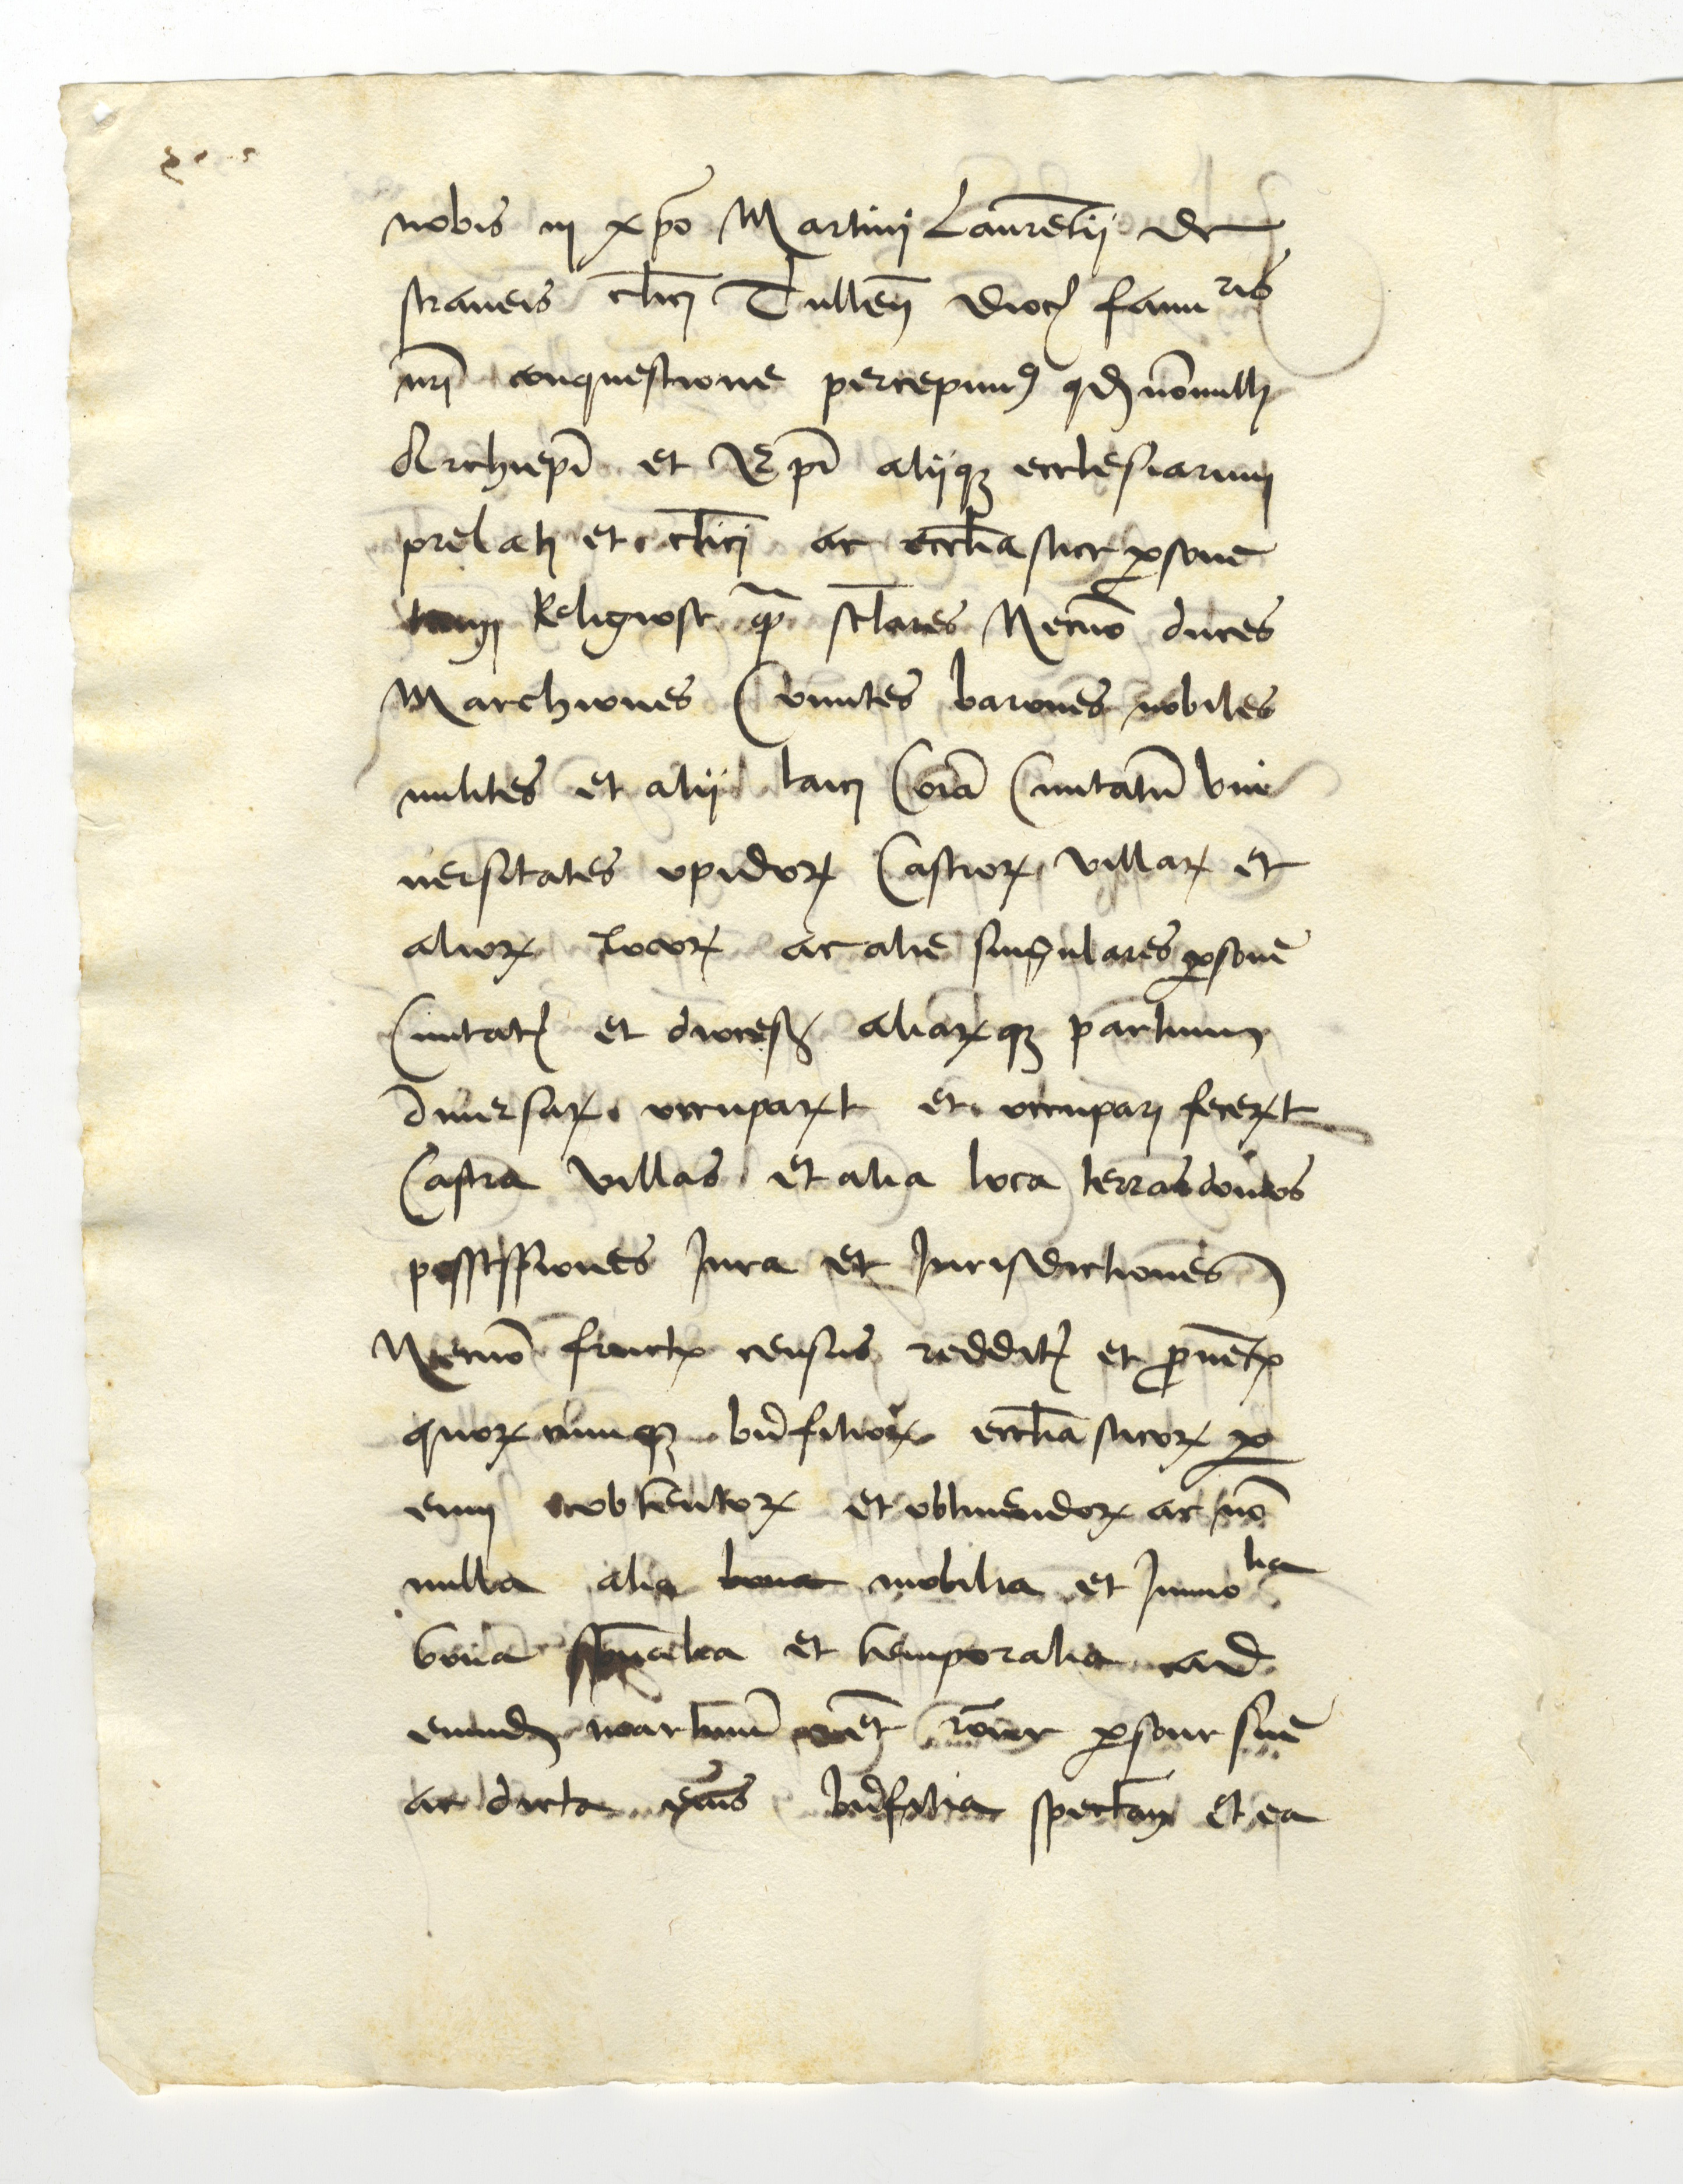 nobis in xpo Martini Laurentii de
straneis clici Tullen dioc famu ris
nri conquestione percepimus qd nonnulli
Archiepi et Epi aliique ecclesiarum
prelati et clici ac eccliastice persone
tam Religiose quam sclares Necno duces
Marchiones Comites barones nobiles
milites et alii laici Coia Ciuitatu Vni
uersitates opidorum Castrorum villarum et
aliorum locorum ac alie singulares persone
Ciuitatum et diocesum aliarumque partium
diuersarum occuparunt et occupari fecerunt
Castra villas et alia loca terras domos
possessiones Jura et Jurisdictiones
Necno fructus census redditus et prouentus
quorumcunque bnficiorum eccliasticorum per
eum obtentorum et obtinendorum ac no
nulla alia bona mobilia et Immo lia
bona spualia et temporalia ad
eundem martinum rone persone sue
ac dicta eius bnficia spectan et ea